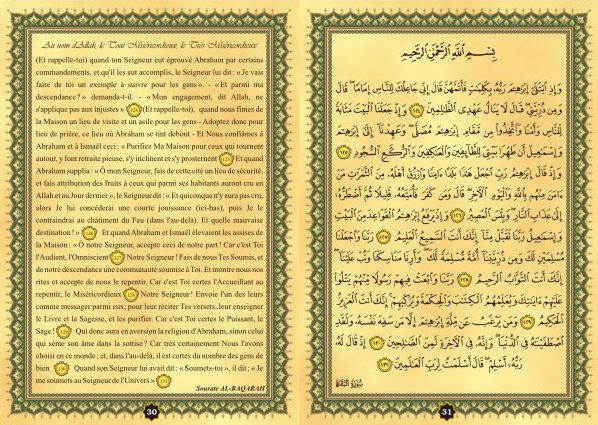 Au nom d'Allah, le Tout Miséricordieux, le Très Miséricordieux
(Et rappelle-toi) quand ton Seigneur eut éprouvé Abraham par certains
commandements, et qu'il les eut accomplis, le Seigneur lui dit : « Je vais
faire de toi un exemple à suivre pour les gens ». - « Et parmi ma
descendance? » demanda-t-il. - « Mon engagement, dit Allah, ne
s'applique pas aux injustes » 124 (Et rappelle-toi), quand nous fîmes de
la Maison un lieu de visite et un asile pour les gens - Adoptez donc pour
lieu de prière, ce lieu où Abraham se tint debout - Et Nous confiâmes à
Abraham et à Ismaël ceci : « Purifiez Ma Maison pour ceux qui tournent
autour, y font retraite pieuse, s'y inclinent et s'y prosternent 125 Et quand
Abraham supplia : « Ô mon Seigneur, fais de cette cité un lieu de sécurité,
et fais attribution des fruits à ceux qui parmi ses habitants auront cru en
Allah et au Jour dernier », le Seigneur dit : « Et quiconque n'y aura pas cru,
alors Je lui concéderai une courte jouissance (ici-bas), puis Je le
contraindrai au châtiment du Feu (dans l'au-delà). Et quelle mauvaise
destination ! » 126 Et quand Abraham et Ismaël élevaient les assises de
la Maison : « Ô notre Seigneur, accepte ceci de notre part ! Car c'est Toi
l'Audient, l'Omniscient 127 Notre Seigneur ! Fais de nous Tes Soumis, et
de notre descendance une communauté soumise à Toi. Et montre nous nos
rites et accepte de nous le repentir. Car c'est Toi certes l'Accueillant au
repentir, le Miséricordieux 128 Notre Seigneur ! Envoie l'un des leurs
comme messager parmi eux, pour leur réciter Tes versets, leur enseigner
le Livre et la Sagesse, et les purifier. Car c'est Toi certes le Puissant, le
Sage ! 129 Qui donc aura en aversion la religion d'Abraham, sinon celui
qui sème son âme dans la sottise ? Car très certainement Nous l'avons
choisi en ce monde ; et, dans l'au-delà, il est certes du nombre des gens de
bien 130 Quand son Seigneur lui avait dit : « Soumets-toi », il dit : « Je
me soumets au Seigneur de l'Univers » 131
Sourate AL-BAQARAH
30
بِسْمِ اللَّهِ الرَّحْمَٰنِ الرَّحِيمِ
وَإِذِ ابْتَلَىٰ إِبْرَاهِيمَ رَبُّهُ بِكَلِمَاتٍ فَأَتَمَّهُنَّ قَالَ إِنِّي جَاعِلُكَ لِلنَّاسِ إِمَامًا قَالَ
وَمِن ذُرِّيَّتِي قَالَ لَا يَنَالُ عَهْدِي الظَّالِمِينَ ١٢٤ وَإِذْ جَعَلْنَا الْبَيْتَ مَثَابَةً
لِّلنَّاسِ وَأَمْنًا وَاتَّخِذُوا مِن مَّقَامِ إِبْرَاهِيمَ مُصَلًّى وَعَهِدْنَا إِلَىٰ إِبْرَاهِيمَ
وَإِسْمَاعِيلَ أَن طَهِّرَا بَيْتِيَ لِلطَّائِفِينَ وَالْعَاكِفِينَ وَالرُّكَّعِ السُّجُودِ ١٢٥
وَإِذْ قَالَ إِبْرَاهِيمُ رَبِّ اجْعَلْ هَٰذَا بَلَدًا آمِنًا وَارْزُقْ أَهْلَهُ مِنَ الثَّمَرَاتِ مَنْ
آمَنَ مِنْهُم بِاللَّهِ وَالْيَوْمِ الْآخِرِ قَالَ وَمَن كَفَرَ فَأُمَتِّعُهُ قَلِيلًا ثُمَّ أَضْطَرُّهُ
إِلَىٰ عَذَابِ النَّارِ وَبِئْسَ الْمَصِيرُ ١٢٦ وَإِذْ يَرْفَعُ إِبْرَاهِيمُ الْقَوَاعِدَ مِنَ الْبَيْتِ
وَإِسْمَاعِيلُ رَبَّنَا تَقَبَّلْ مِنَّا إِنَّكَ أَنتَ السَّمِيعُ الْعَلِيمُ ١٢٧ رَبَّنَا وَاجْعَلْنَا
مُسْلِمَيْنِ لَكَ وَمِن ذُرِّيَّتِنَا أُمَّةً مُّسْلِمَةً لَّكَ وَأَرِنَا مَنَاسِكَنَا وَتُبْ عَلَيْنَا
إِنَّكَ أَنتَ التَّوَّابُ الرَّحِيمُ ١٢٨ رَبَّنَا وَابْعَثْ فِيهِمْ رَسُولًا مِّنْهُمْ يَتْلُو
عَلَيْهِمْ آيَاتِكَ وَيُعَلِّمُهُمُ الْكِتَابَ وَالْحِكْمَةَ وَيُزَكِّيهِمْ إِنَّكَ أَنتَ الْعَزِيزُ
الْحَكِيمُ ١٢٩ وَمَن يَرْغَبُ عَن مِّلَّةِ إِبْرَاهِيمَ إِلَّا مَن سَفِهَ نَفْسَهُ وَلَقَدِ
اصْطَفَيْنَاهُ فِي الدُّنْيَا وَإِنَّهُ فِي الْآخِرَةِ لَمِنَ الصَّالِحِينَ ١٣٠ إِذْ قَالَ لَهُ
رَبُّهُ أَسْلِمْ قَالَ أَسْلَمْتُ لِرَبِّ الْعَالَمِينَ ١٣١
سُورَةُ الْبَقَرَةِ
31